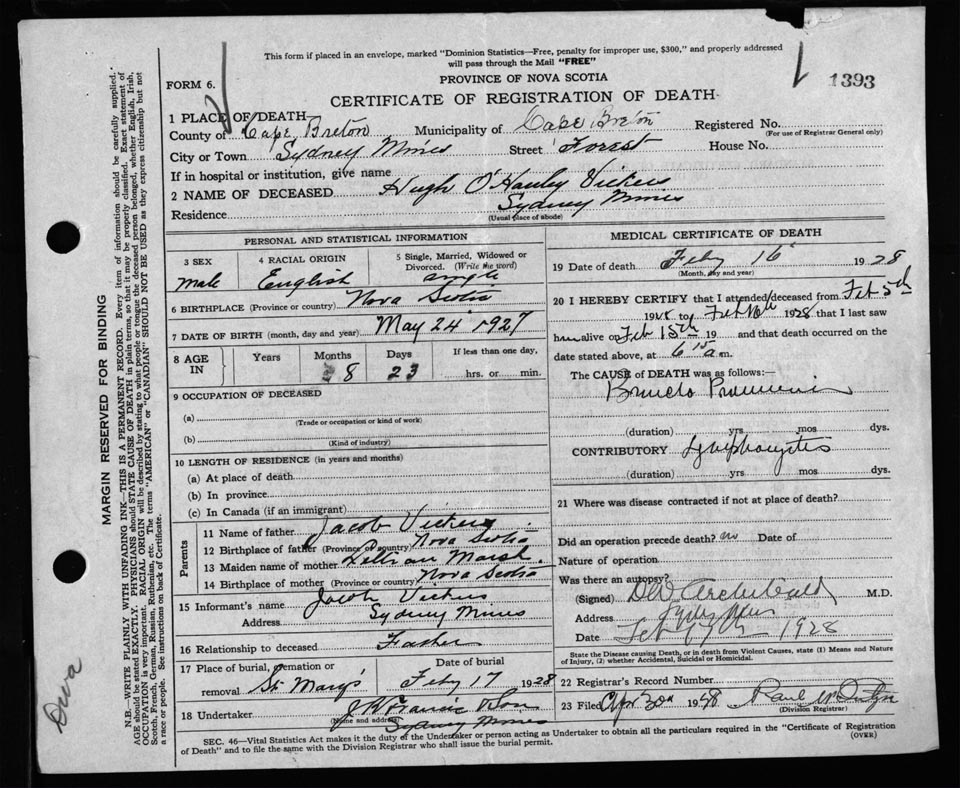 This form if placed in an envelope, marked "Dominion Statistics—Free, penalty for improper use, $300," and properly addressed
will pass through the Mail "FREE"
FORM 6.
PROVINCE OF NOVA SCOTIA
1393
CERTIFICATE OF REGISTRATION OF DEATH
1 PLACE OF DEATH
County of Cape Breton Municipality of Cape Breton Registered No.
(For use of Registrar General only)
City or Town Sydney Mines Street Forrest House No.
If in hospital or institution, give name
2 NAME OF DECEASED Hugh O'Hanley Vickers
Residence Sydney Mines
(Usual place of abode)
PERSONAL AND STATISTICAL INFORMATION
3 SEX 4 RACIAL ORIGIN 5 Single, Married, Widowed or Divorced. (Write the word)
male English single
6 BIRTHPLACE (Province or country) Nova Scotia
7 DATE OF BIRTH (month, day and year) May 24 1927
8 AGE IN Years Months Days If less than one day,
8 23 hrs. or min.
9 OCCUPATION OF DECEASED
(a)
(Trade or occupation or kind of work)
(b)
(Kind of industry)
10 LENGTH OF RESIDENCE (in years and months)
(a) At place of death
(b) In province
(c) In Canada (if an immigrant)
Parents
11 Name of father Jacob Vickers
12 Birthplace of father (Province or country) Nova Scotia
13 Maiden name of mother Lillian Marsh
14 Birthplace of mother (Province or country) Nova Scotia
15 Informant's name Jacob Vickers
Address Sydney Mines
16 Relationship to deceased Father
17 Place of burial, cremation or removal St Mary's Date of burial Feby 17 1928
18 Undertaker J. K. Francis &amp; Son
(Name and address) Sydney Mines
MEDICAL CERTIFICATE OF DEATH
19 Date of death Feby 16 1928
(Month, day and year)
20 I HEREBY CERTIFY that I attended deceased from Feb 5th
1928 to Feb 16 1928 that I last saw
him alive on Feb 15th 19 and that death occurred on the
date stated above, at 6 15 a m.
The CAUSE of DEATH was as follows:—
Broncho Pneumonia
(duration) yrs mos dys.
CONTRIBUTORY
(duration) yrs mos dys.
21 Where was disease contracted if not at place of death?
Did an operation precede death? no Date of
Nature of operation
Was there an autopsy?
(Signed) D W Archibald M.D.
Address Sydney Mines
Date Feb 1928
State the Disease causing Death, or in death from Violent Causes, state (1) Means and Nature
of Injury, (2) whether Accidental, Suicidal or Homicidal.
22 Registrar's Record Number
23 Filed Apr 30th 1928 Paul
(Division Registrar)
SEC. 46—Vital Statistics Act makes it the duty of the Undertaker or person acting as Undertaker to obtain all the particulars required in the "Certificate of Registration
of Death" and to file the same with the Division Registrar who shall issue the burial permit.
(OVER)
MARGIN RESERVED FOR BINDING
N.B.—WRITE PLAINLY WITH UNFADING INK—THIS IS A PERMANENT RECORD. Every item of information should be carefully supplied.
AGE should be stated EXACTLY. PHYSICIANS should STATE CAUSE OF DEATH in plain terms, so that it may be properly classified. Exact statement of
OCCUPATION is very important. RACIAL ORIGIN will be described by stating to what people or tongue the deceased person belonged, whether English, Irish,
Scotch, French, German, Russian, Ruthenian, etc. The terms "AMERICAN" or "CANADIAN" SHOULD NOT BE USED as they express citizenship but not
a race or people. See instructions on back of Certificate.